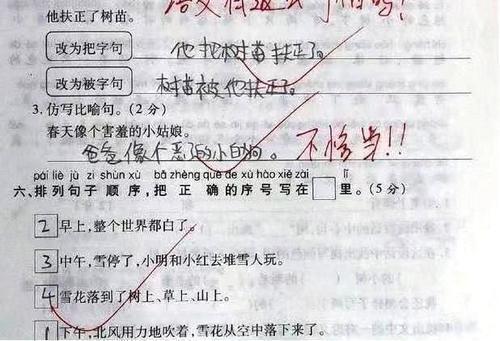 他扶正了树苗。
改为把字句 他把树苗扶正了。
改为被字句 树苗被他扶正了。
3. 仿写比喻句。(2 分)
春天像个害羞的小姑娘。
爸爸像个恶的小白狗。 不恰当!!
pái liè jù zi shùn xù bǎ zhèng què de xù hào xiě zài lǐ
六、排列句子 顺序,把 正 确的序号 写在□里。(5 分)
2 早上,整个世界都白了。
3 中午,雪停了,小明和小红去堆雪人玩。
4 雪花落到了树上、草上、山上。
1 下午,北风用力地吹着,雪花从空中落下来了。